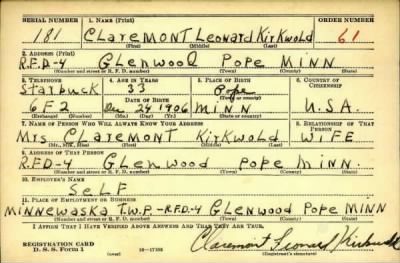 SERIAL NUMBER 1. NAME (Print) ORDER NUMBER
181 CLAREMONT LEONARD KIRKWOLD 61
(First) (Middle) (Last)
2. ADDRESS (Print)
R.F.D-4 GLENWOOD POPE MINN
(Number and street or R. F. D. number) (Town) (County) (State)
3. TELEPHONE 4. AGE IN YEARS 5. PLACE OF BIRTH 6. COUNTRY OF CITIZENSHIP
Starbuck 33 Pope
DATE OF BIRTH (Town or county)
6F2 24 1906 MINN U.S.A.
(Exchange) (Number) (Mo.) (Day) (Yr.) (State or country)
7. NAME OF PERSON WHO WILL ALWAYS KNOW YOUR ADDRESS 8. RELATIONSHIP OF THAT PERSON
Mrs CLAREMONT KIRKWOLD WIFE
(Mr., Mrs., Miss) (First) (Middle) (Last)
9. ADDRESS OF THAT PERSON
R.F.D-4 GLENWOOD POPE MINN.
(Number and street or R. F. D. number) (Town) (County) (State)
10. EMPLOYER'S NAME
SELF
11. PLACE OF EMPLOYMENT OR BUSINESS
MINNEWASKA T.W.P.-R.F.D-4 GLENWOOD POPE MINN
(Number and street or R. F. D. number) (Town) (County) (State)
I AFFIRM THAT I HAVE VERIFIED ABOVE ANSWERS AND THAT THEY ARE TRUE.
REGISTRATION CARD Claremont Leonard Kirkwold
D. S. S. FORM 1 16-17105 (Registrant's signature)